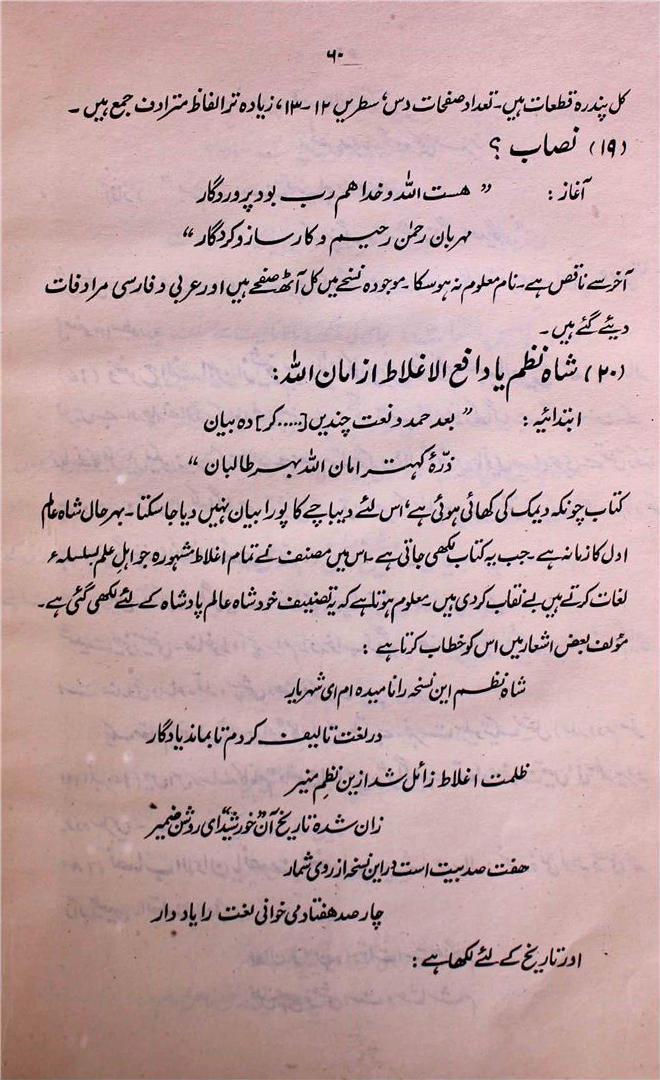 ۶۰
کل پندرہ قطعات ہیں۔ تعداد صفحات دس، سطریں ۱۲-۱۳، زیادہ تر الفاظ مترادف جمع ہیں۔
(۱۹) نصاب ؟
آغاز : ” هست اللہ و خدا هم رب بود پروردگار
مہربان رحمٰن رحیم و کارساز و کردگار “
آخر سے ناقص ہے۔ نام معلوم نہ ہوسکا۔ موجودہ نسخے میں کل آٹھ صفحے ہیں اور عربی و فارسی مرادفات
دیئے گئے ہیں۔
(۲۰) شاہ نظم یا دافع الاغلاط از امان اللہ :
ابتدائیہ : ” بعد حمد و نعت چندیں [..... کر] دہ بیان
ذرۂ کہتر امان اللہ بہر طالبان “
کتاب چونکہ دیمک کی کھائی ہوئی ہے، اس لئے دیباچے کا پورا بیان نہیں دیا جا سکتا۔ بہرحال شاہ عالم
اول کا زمانہ ہے۔ جب یہ کتاب لکھی جاتی ہے۔ اس میں مصنف نے تمام اغلاط مشہورہ جو اہل علم بسلسلہء
لغات کرتے ہیں بے نقاب کردی ہیں۔ معلوم ہوتا ہے کہ یہ تصنیف خود شاہ عالم پادشاہ کے لئے لکھی گئی ہے۔
مؤلف بعض اشعار میں اس کو خطاب کرتا ہے :
شاہ نظم این نسخہ را نامیدہ ام ای شہریار
در لغت تالیف کردم تا بماند یادگار
ظلمت اغلاط زائل شد ازین نظم منیر
زان شدہ تاریخ آن ”خورشید“ ای روشن ضمیر
ہفت صد بیت است در این نسخہ از روی شمار
چار صد ہفتاد می خوانی لغت را یاد دار
اور تاریخ کے لئے لکھا ہے :